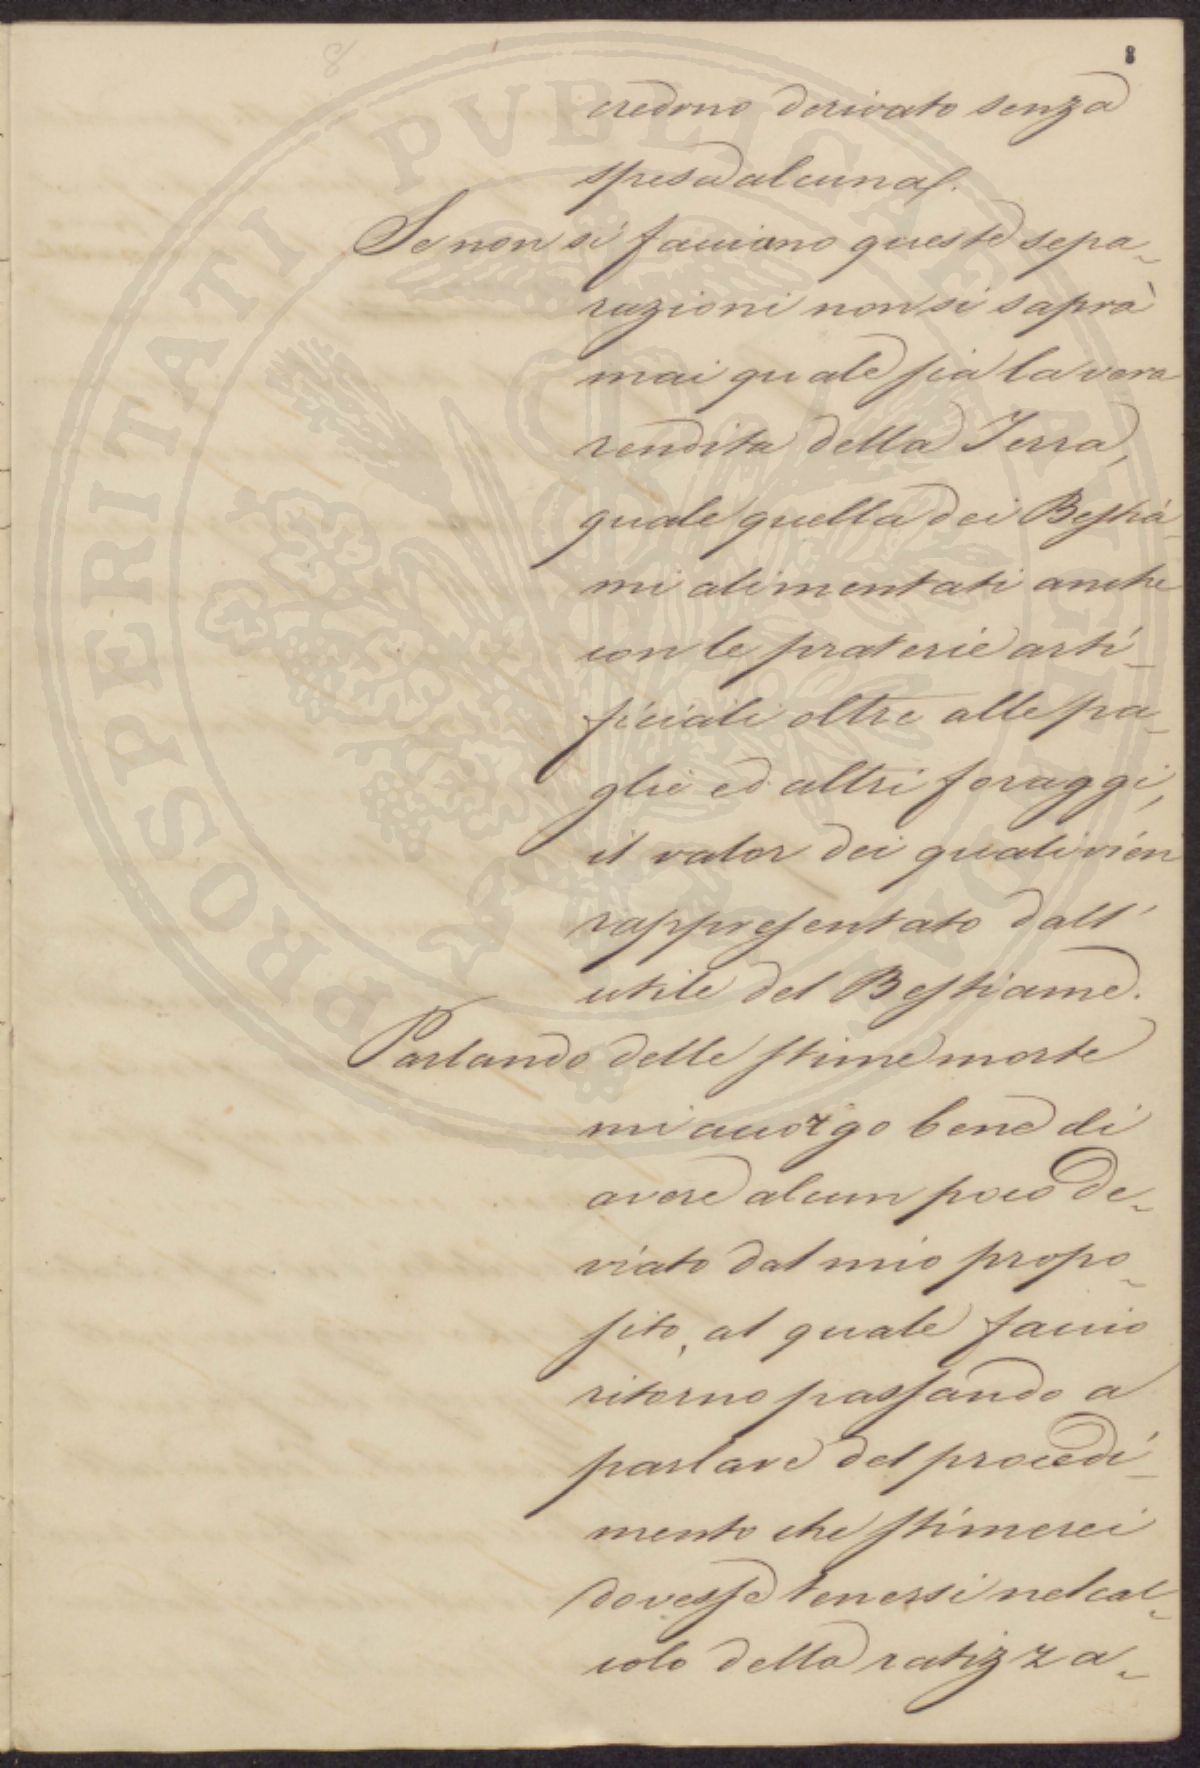 8
credono derivato senza
spesa alcuna.
Se non si facciano queste sepa-
razioni non si saprà
mai quale sia la vera
rendita della Terra,
quale quella dei Bestia-
mi alimentati anche
con le praterie arti-
ficiali oltre alle pa-
glie ed altri foraggi,
il valor dei quali vien
rappresentato dall'
utile del Bestiame.
Parlando delle stime morte
mi accorgo bene di
avere alcun poco de-
viato dal mio propo-
sito, al quale faccio
ritorno passando a
parlare del procedi-
mento che stimerei
dovesse tenersi nel cal-
colo della ratizza-
PROSPERITATI PVBLICAE AVGENDAE